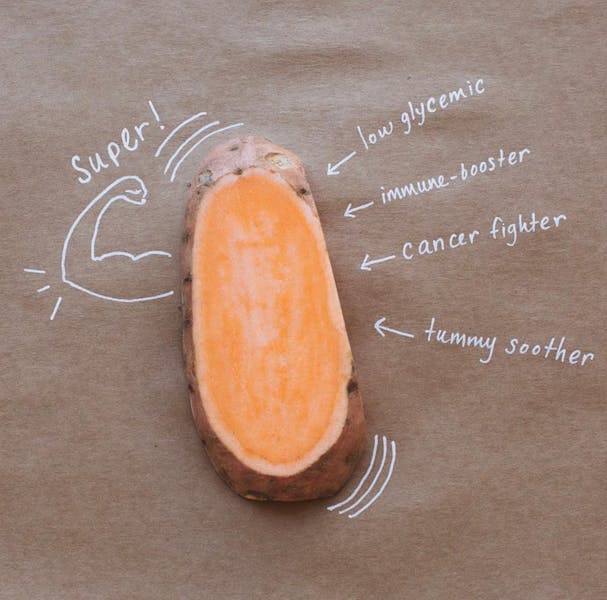 Super!
low glycemic
immune-booster
cancer fighter
tummy soother